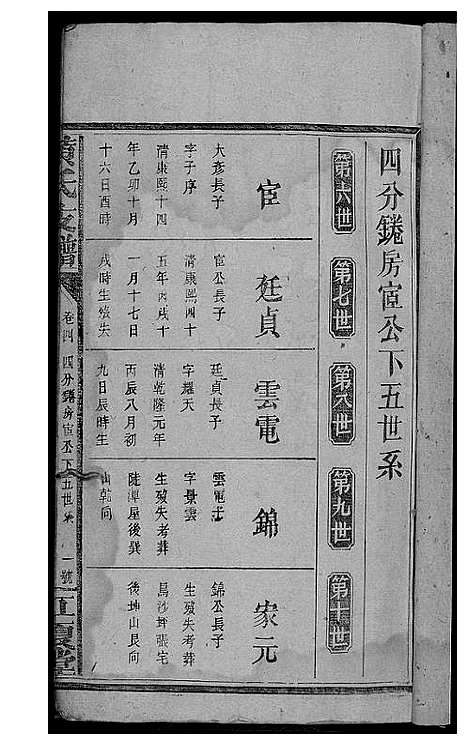 四分錈房宦公下五世系
第六世
第七世
第八世
第九世
第十世
宦
大彥長子
字子序
清康熙十四
年乙卯十月
十六日酉時
廷貞
宦公長子
清康熙四十
五年丙戌十
一月十七日
戌時生歿失
雲電
廷貞長子
字耀天
清乾隆元年
丙辰八月初
九日辰時生
錦
雲電子
字景雲
生歿失考葬
陡潭屋後巽
山乾向
家元
錦公長子
生歿失考葬
烏沙坪張宅
後坤山艮向
氏支譜
卷四
四分錈房宦公下五世系
一號